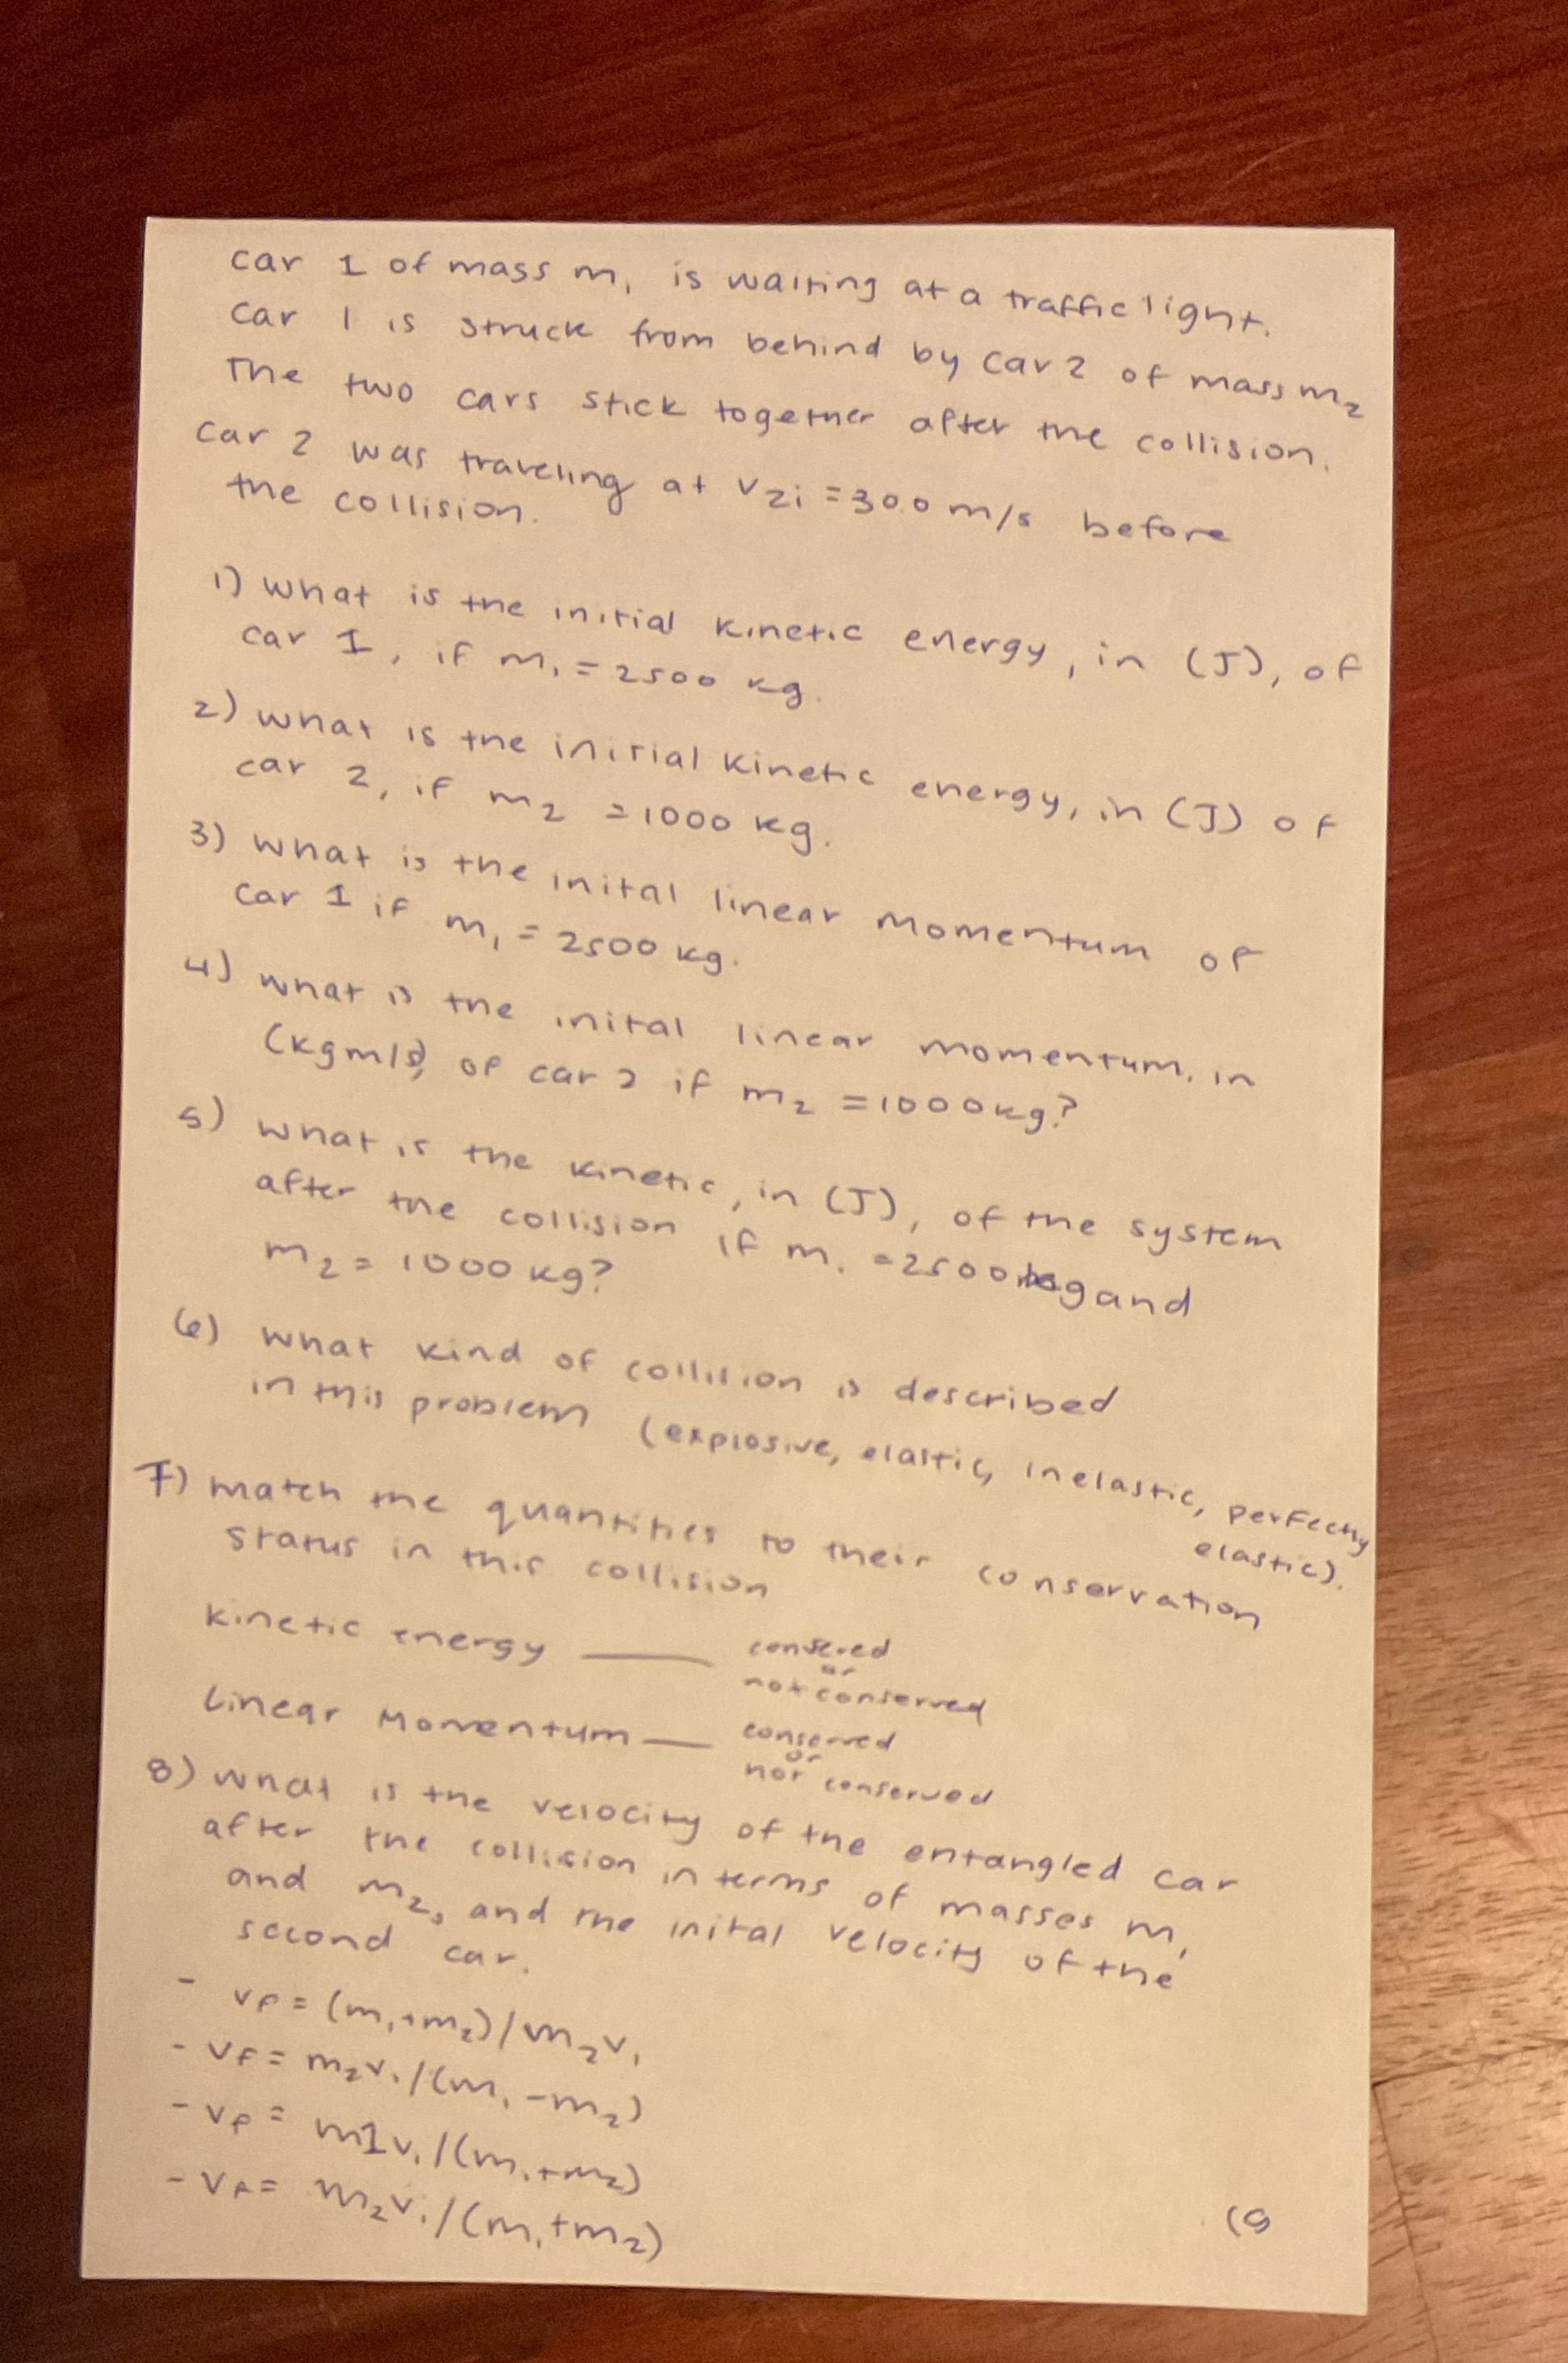 car 1 of mass m₁ is waiting at a traffic light.
car 1 is struck from behind by car 2 of mass m₂
The two cars stick together after the collision.
car 2 was traveling at v₂i = 30.0 m/s before
the collision.
1) what is the initial kinetic energy, in (J), of
car 1, if m₁ = 2500 kg.
2) what is the initial kinetic energy, in (J) of
car 2, if m₂ = 1000 kg.
3) what is the inital linear momentum of
car 1 if m₁ = 2500 kg.
4) what is the inital linear momentum, in
(kgm/s), of car 2 if m₂ = 1000kg?
5) what is the kinetic, in (J), of the system
after the collision if m₁ = 2500 kg and
m₂ = 1000 kg?
6) what kind of collision is described
in this problem (explosive, elastic, inelastic, perfectly
elastic).
7) match the quantities to their conservation
status in this collision
kinetic energy ___ consered
or
not conserved
Linear Momentum ___ conserved
or
not conserved
8) what is the velocity of the entangled car
after the collision in terms of masses m₁
and m₂, and the inital velocity of the
second car.
- vf = (m₁+m₂)/m₂v₁
- vf = m₂v₁/(m₁-m₂)
- vf = m1v₁/(m₁+m₂)
- vf = m₂v₁/(m₁+m₂)